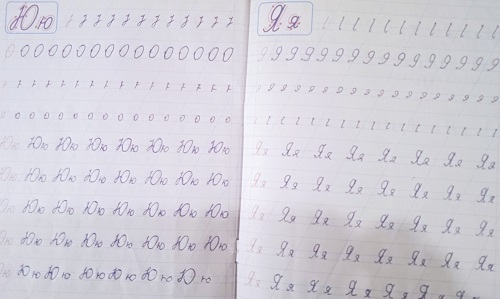 Ю ю
Юю Юю Юю Юю Юю Юю Юю Юю
Юю Юю Юю Юю Юю Юю Юю Юю
Юю Юю Юю Юю Юю Юю Юю Юю
Юю Юю Юю Юю Юю Юю Юю Юю
Юю Юю Юю Юю Юю Юю Юю
Я я
Яя Яя Яя Яя Яя Яя Яя Яя
Яя Яя Яя Яя Яя Яя Яя Яя
Яя Яя Яя Яя Яя Яя Яя Яя
Яя Яя Яя Яя Яя Яя Яя Яя
Яя Яя Яя Яя Яя Яя Яя